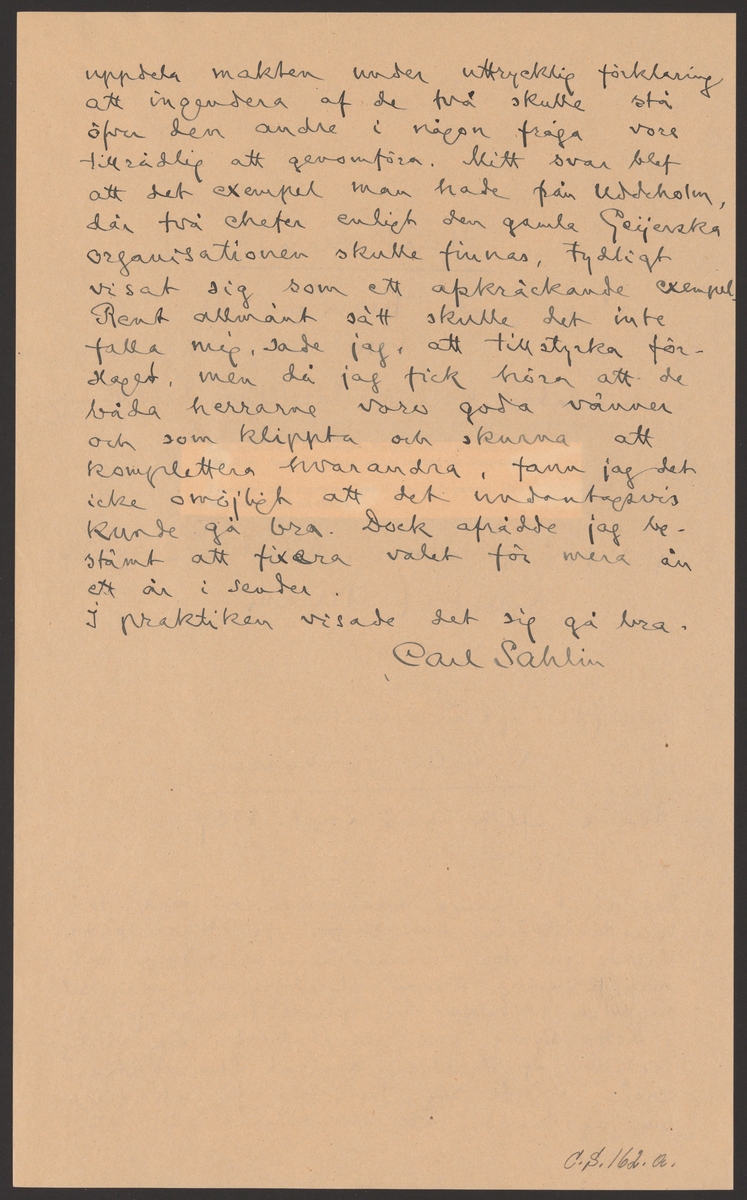 uppdela makten under uttrycklig förklaring
att ingendera af de två skulle stå
öfver den andre i någon fråga vore
tillrådlig att genomföra. Mitt svar blef
att det exempel man hade från Uddeholm,
där två chefer enligt den gamla Geijerska
organisationen skulle finnas, tydligt
visat sig som ett afskräckande exempel.
Rent allmänt sätt skulle det inte
falla mig, sade jag, att tillstyrka för-
slaget, men då jag fick höra att de
båda herrarne voro goda vänner
och som klippta och skurna att
komplettera hvarandra, fann jag det
icke omöjligt att det undantagsvis
kunde gå bra. Dock afrådde jag be-
stämt att fixera valet för mera än
ett år i sender.
I praktiken visade det sig gå bra.
Carl Sahlin
C.S. 162. a.